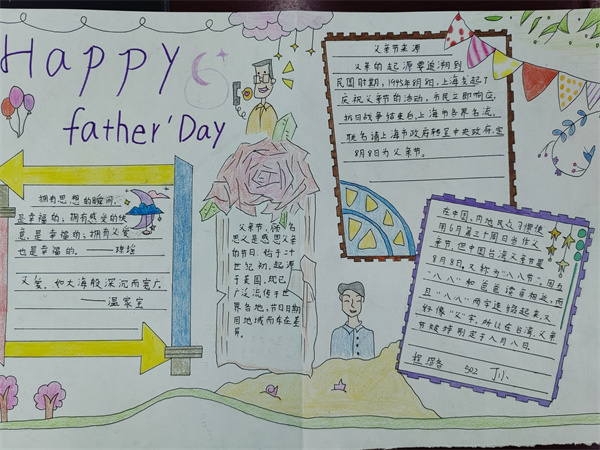 Happy
father'Day
拥有思想的瞬间,
是幸福的;拥有感受的快
意,是幸福的;拥有父爱
也是幸福的。
父爱,如大海般深沉而宽广。
——温家宝
父亲节,顾名
思义是感恩父亲
的节日。始于二十
世纪初,起源
于美国,现已
广泛流传于世
界各地,节日日期
因地域而存在差
异。
父亲节来源
父亲的起源要追溯到
民国时期,1945年8月8日,上海发起了
庆祝父亲节的活动,市民立即响应,
抗日战争结束后,上海市各界名流,
联名请上海市政府转呈中央政府,定
8月8日为父亲节。
在中国,内地民众习惯使
用6月第三个周日当作父
亲节,但中国台湾父亲节是
8月8日,又称为“八八节”。因五
“八八”和爸爸读音相近,而
且“八八”两字连结起来,又
好像“父”字,所以在台湾,父亲
节被特别定于八月八日。
502 丁小